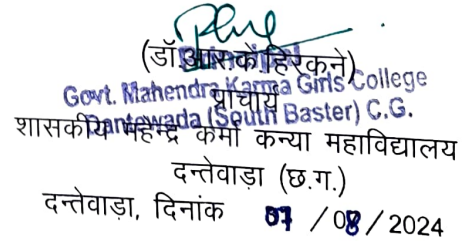 (डॉ आर के हिरकने)
Principal
Govt. Mahendra Karma Girls College
प्राचार्य
Dantewada (South Baster) C.G.
शासकीय महेन्द्र कर्मा कन्या महाविद्यालय
दन्तेवाड़ा (छ.ग.)
दन्तेवाड़ा, दिनांक 07 /08/ 2024